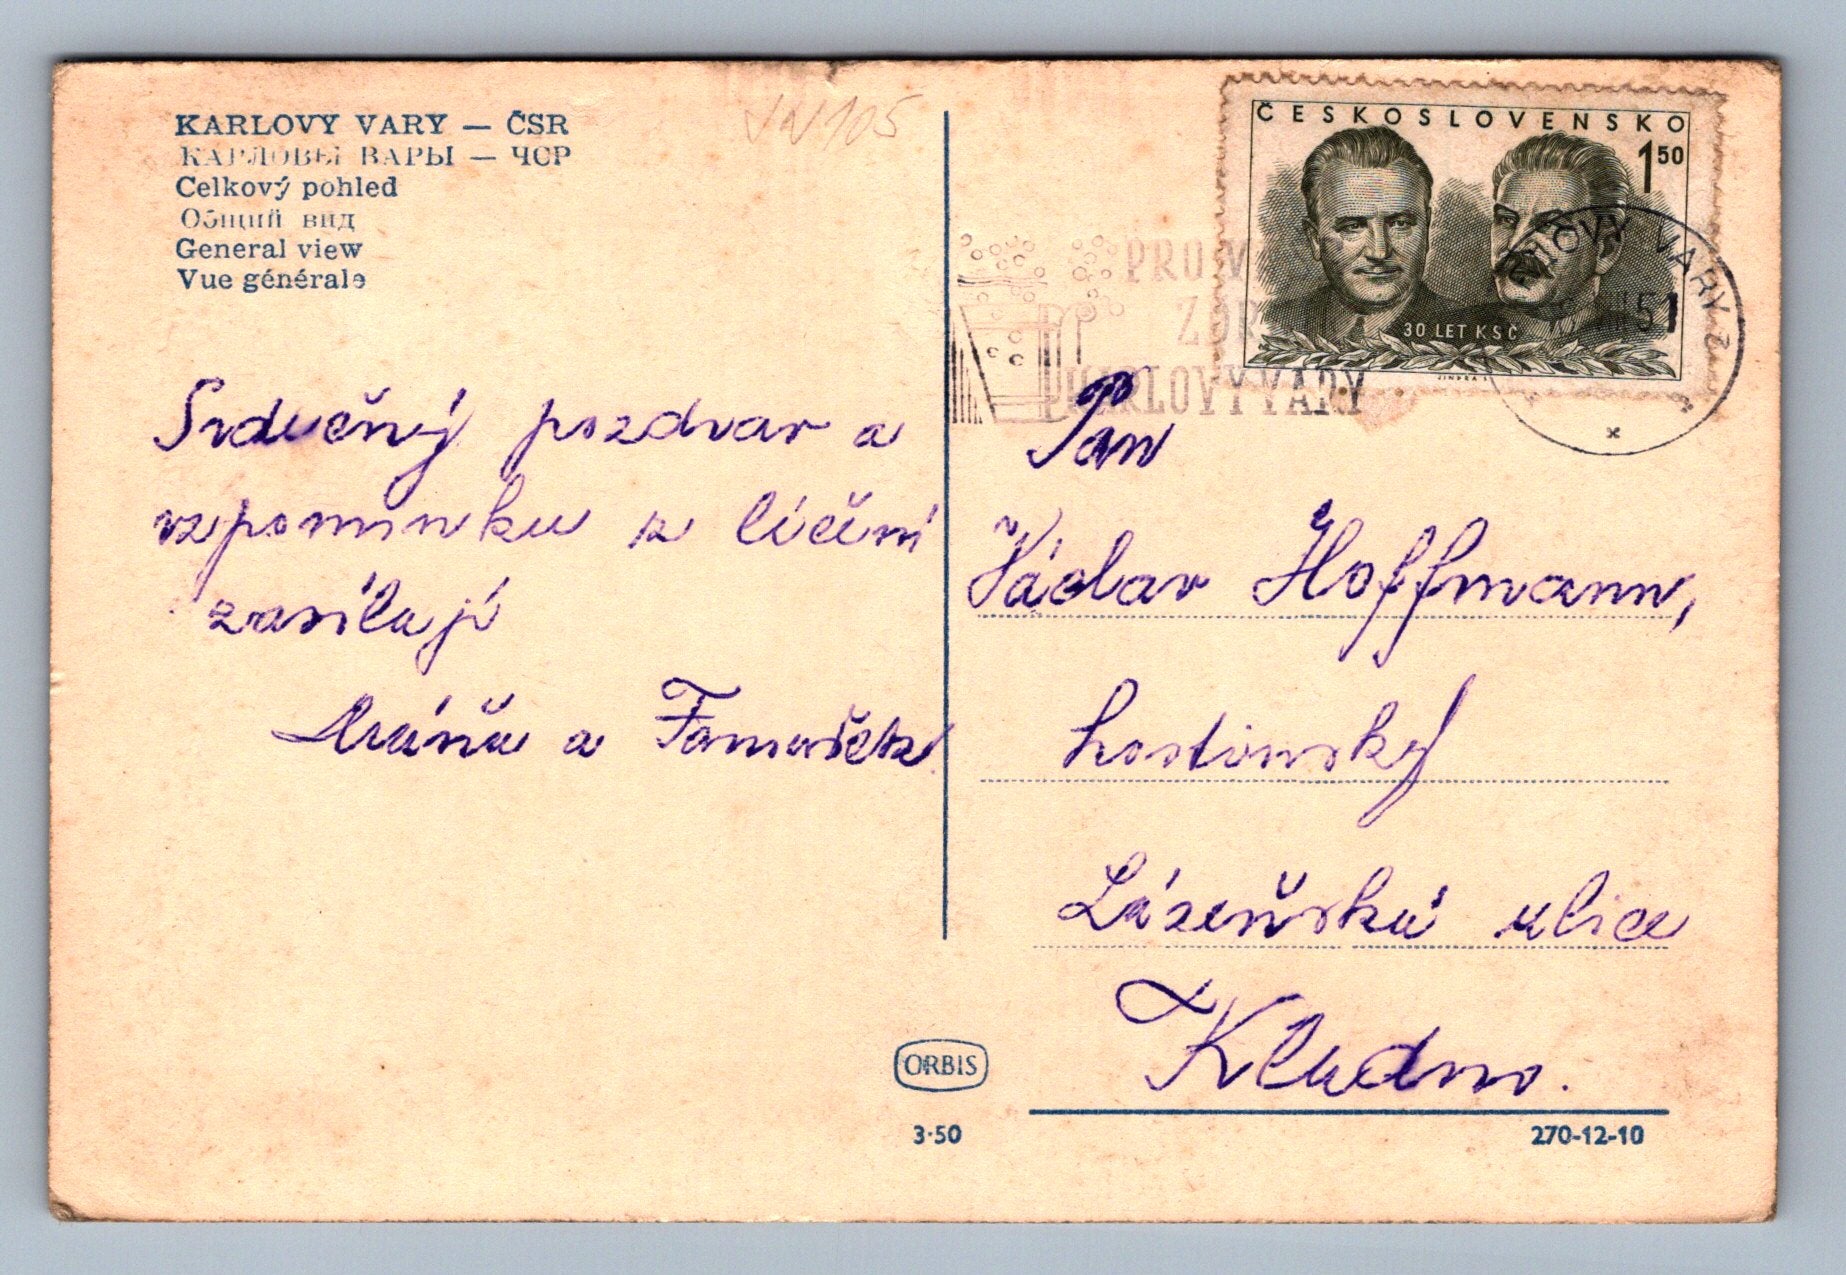 KARLOVY VARY — ČSR
КАРЛОВЫ ВАРЫ — ЧСР
Celkový pohled
Общий вид
General view
Vue générale
Srdečný pozdrav a
vzpomínku z léčení
zasílají
Máňa a Tomášek
ČESKOSLOVENSKO
1 50
30 LET KSČ
KARLOVY VARY 2
51
PRO
KARLOVY VARY
Pan
Václav Hoffmann,
hostinský
Lázeňská ulice
Kladno.
ORBIS
3·50
270-12-10